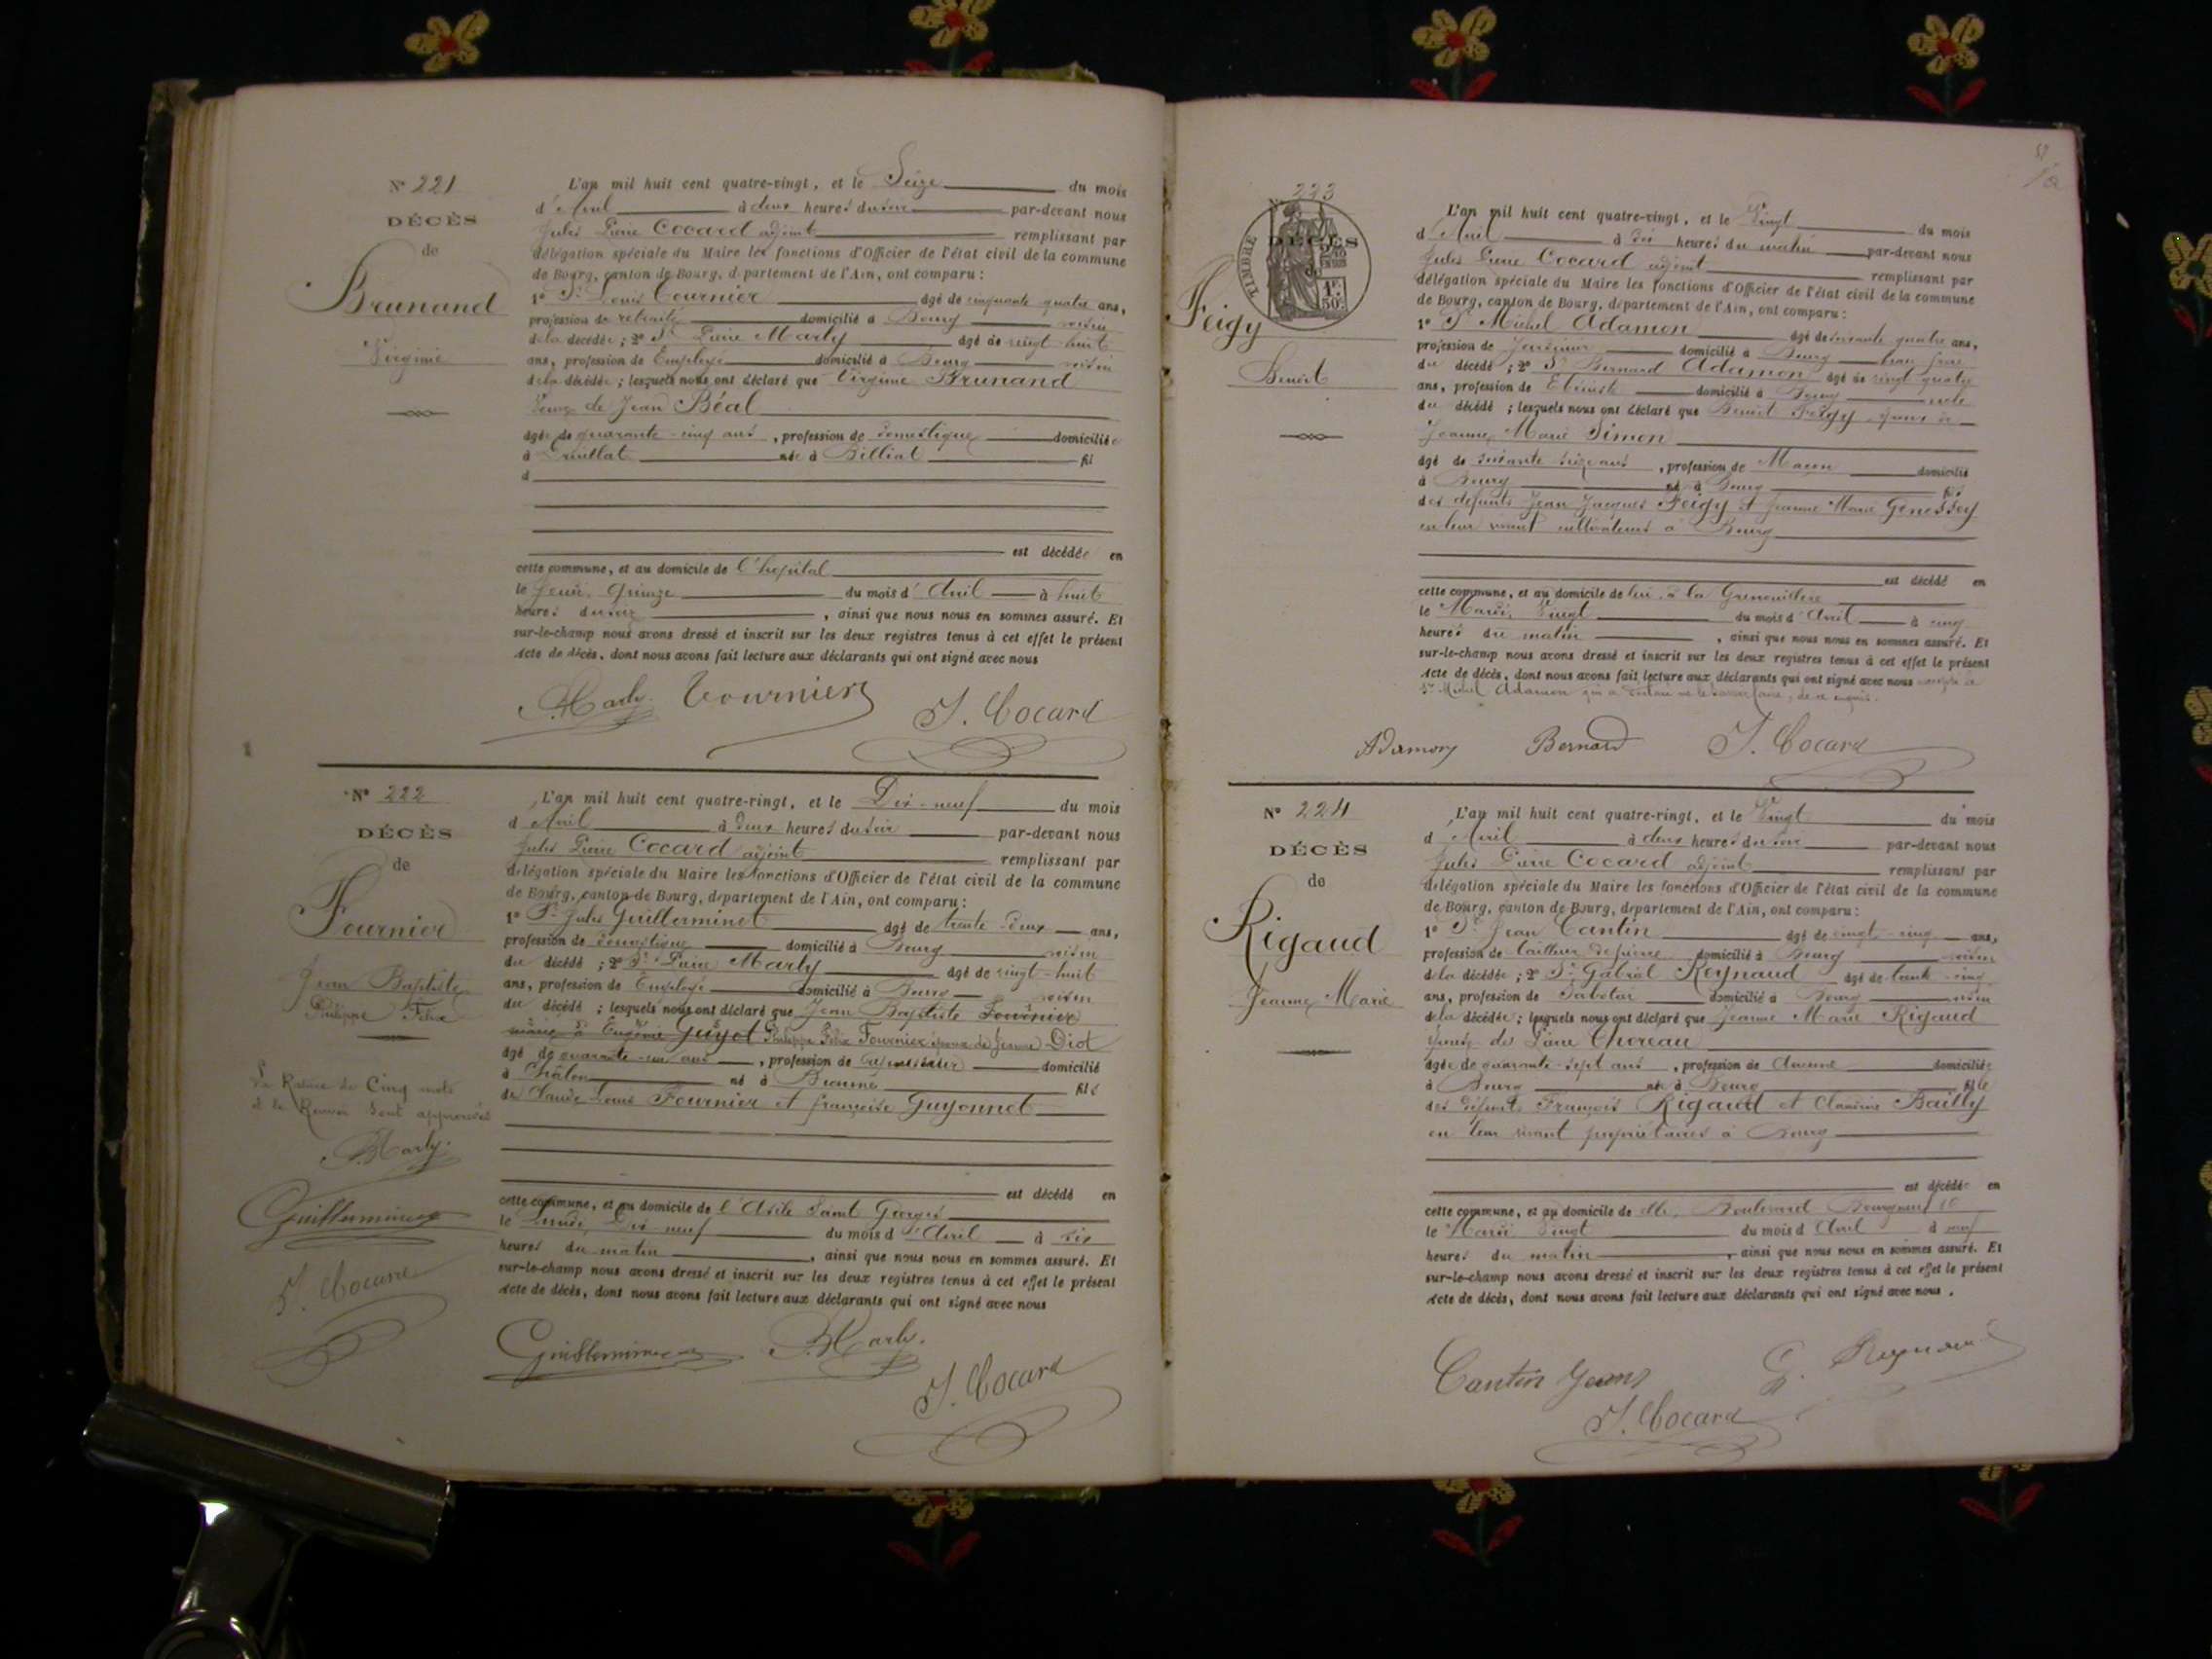 N° 221
DÉCÈS
de
Brunand
Virginie
L'an mil huit cent quatre-vingt, et le Seize du mois
d'Avril à deux heures du soir par-devant nous
Jules Pierre Cocard adjoint remplissant par
délégation spéciale du Maire les fonctions d'Officier de l'état civil de la commune
de Bourg, canton de Bourg, département de l'Ain, ont comparu :
1° Sr Louis Tournier âgé de cinquante quatre ans,
profession de retraité domicilié à Bourg voisin
de la décédée ; 2° Sr Pierre Marly âgé de vingt-huit
ans, profession de Employé domicilié à Bourg voisin
de la décédée ; lesquels nous ont déclaré que Virginie Brunand
Veuve de Jean Béal
âgée de quarante-cinq ans, profession de domestique domiciliée
à Druillat née à Billiat fil
d
est décédée en
cette commune, et au domicile de l'hôpital
le Jeudi, Quinze du mois d'Avril à huit
heures du soir, ainsi que nous nous en sommes assuré. Et
sur-le-champ nous avons dressé et inscrit sur les deux registres tenus à cet effet le présent
Acte de décès, dont nous avons fait lecture aux déclarants qui ont signé avec nous
Marly. Tournier J. Cocard
N° 222
DÉCÈS
de
Fournier
Jean Baptiste
Philippe Félix
La Rature de Cinq mots
et le Renvoi sont approuvés
Marly.
Guillerminet
J. Cocard
L'an mil huit cent quatre-vingt, et le Dix-neuf du mois
d'Avril à deux heures du soir par-devant nous
Jules Pierre Cocard adjoint remplissant par
délégation spéciale du Maire les fonctions d'Officier de l'état civil de la commune
de Bourg, canton de Bourg, département de l'Ain, ont comparu :
1° Sr Jules Guillerminet âgé de trente-deux ans,
profession de domestique domicilié à Bourg voisin
du décédé ; 2° Sr Pierre Marly âgé de vingt-huit
ans, profession de Employé domicilié à Bourg voisin
du décédé ; lesquels nous ont déclaré que Jean Baptiste Fournier
Eugénie Guyot Philippe Félix Fournier époux de Jeanne Diot
âgé de quarante-un ans, profession de domicilié
à Châlon né à Beaune fils
de Claude Louis Fournier et françoise Guyonnet
est décédé en
cette commune, et au domicile de l'Asile Saint Georges
le Lundi, Dix neuf du mois d'Avril à six
heures du matin, ainsi que nous nous en sommes assuré. Et
sur-le-champ nous avons dressé et inscrit sur les deux registres tenus à cet effet le présent
Acte de décès, dont nous avons fait lecture aux déclarants qui ont signé avec nous
Guillerminet Marly. J. Cocard
N° 223
DÉCÈS
de
TIMBRE
1F
50C
Feigy
Benoît
L'an mil huit cent quatre-vingt, et le Vingt du mois
d'Avril à dix heures du matin par-devant nous
Jules Pierre Cocard adjoint remplissant par
délégation spéciale du Maire les fonctions d'Officier de l'état civil de la commune
de Bourg, canton de Bourg, département de l'Ain, ont comparu :
1° Sr Michel Adamon âgé de soixante quatre ans,
profession de Jardinier domicilié à Bourg beau frère
du décédé ; 2° Sr Bernard Adamon âgé de vingt quatre
ans, profession de Ebéniste domicilié à Bourg
du décédé ; lesquels nous ont déclaré que Benoît Feigy époux de
Jeanne Marie Simon
âgé de soixante seize ans, profession de Maçon domicilié
à Bourg né à Bourg fils
des défunts Jean Jacques Feigy et Jeanne Marie Genessey
en leur vivant cultivateurs à Bourg
est décédé en
cette commune, et au domicile de lui, à la Grenouillère
le Mardi, Vingt du mois d'Avril à cinq
heures du matin, ainsi que nous nous en sommes assuré. Et
sur-le-champ nous avons dressé et inscrit sur les deux registres tenus à cet effet le présent
Acte de décès, dont nous avons fait lecture aux déclarants qui ont signé avec nous excepté le
Sr Michel Adamon qui a déclaré ne le savoir faire, de ce enquis.
Adamon Bernard J. Cocard
N° 224
DÉCÈS
de
Rigaud
Jeanne Marie
L'an mil huit cent quatre-vingt, et le Vingt du mois
d'Avril à deux heures du soir par-devant nous
Jules Pierre Cocard adjoint remplissant par
délégation spéciale du Maire les fonctions d'Officier de l'état civil de la commune
de Bourg, canton de Bourg, département de l'Ain, ont comparu :
1° Sr Jean Cantin âgé de vingt-cinq ans,
profession de tailleur de pierre domicilié à Bourg voisin
de la décédée ; 2° Sr Gabriel Reynaud âgé de trente-cinq
ans, profession de Sabotier domicilié à Bourg voisin
de la décédée ; lesquels nous ont déclaré que Jeanne Marie Rigaud
épouse de Pierre Choreau
âgée de quarante-sept ans, profession de Aucune domiciliée
à Bourg née à Bourg fille
des défunts François Rigaud et Claudine Bailly
en leur vivant propriétaires à Bourg
est décédée en
cette commune, et au domicile de elle, Boulevard Bourgneuf 10
le Mardi Vingt du mois d'Avril à neuf
heures du matin, ainsi que nous nous en sommes assuré. Et
sur-le-champ nous avons dressé et inscrit sur les deux registres tenus à cet effet le présent
Acte de décès, dont nous avons fait lecture aux déclarants qui ont signé avec nous.
Cantin Jean G. Reynaud
J. Cocard